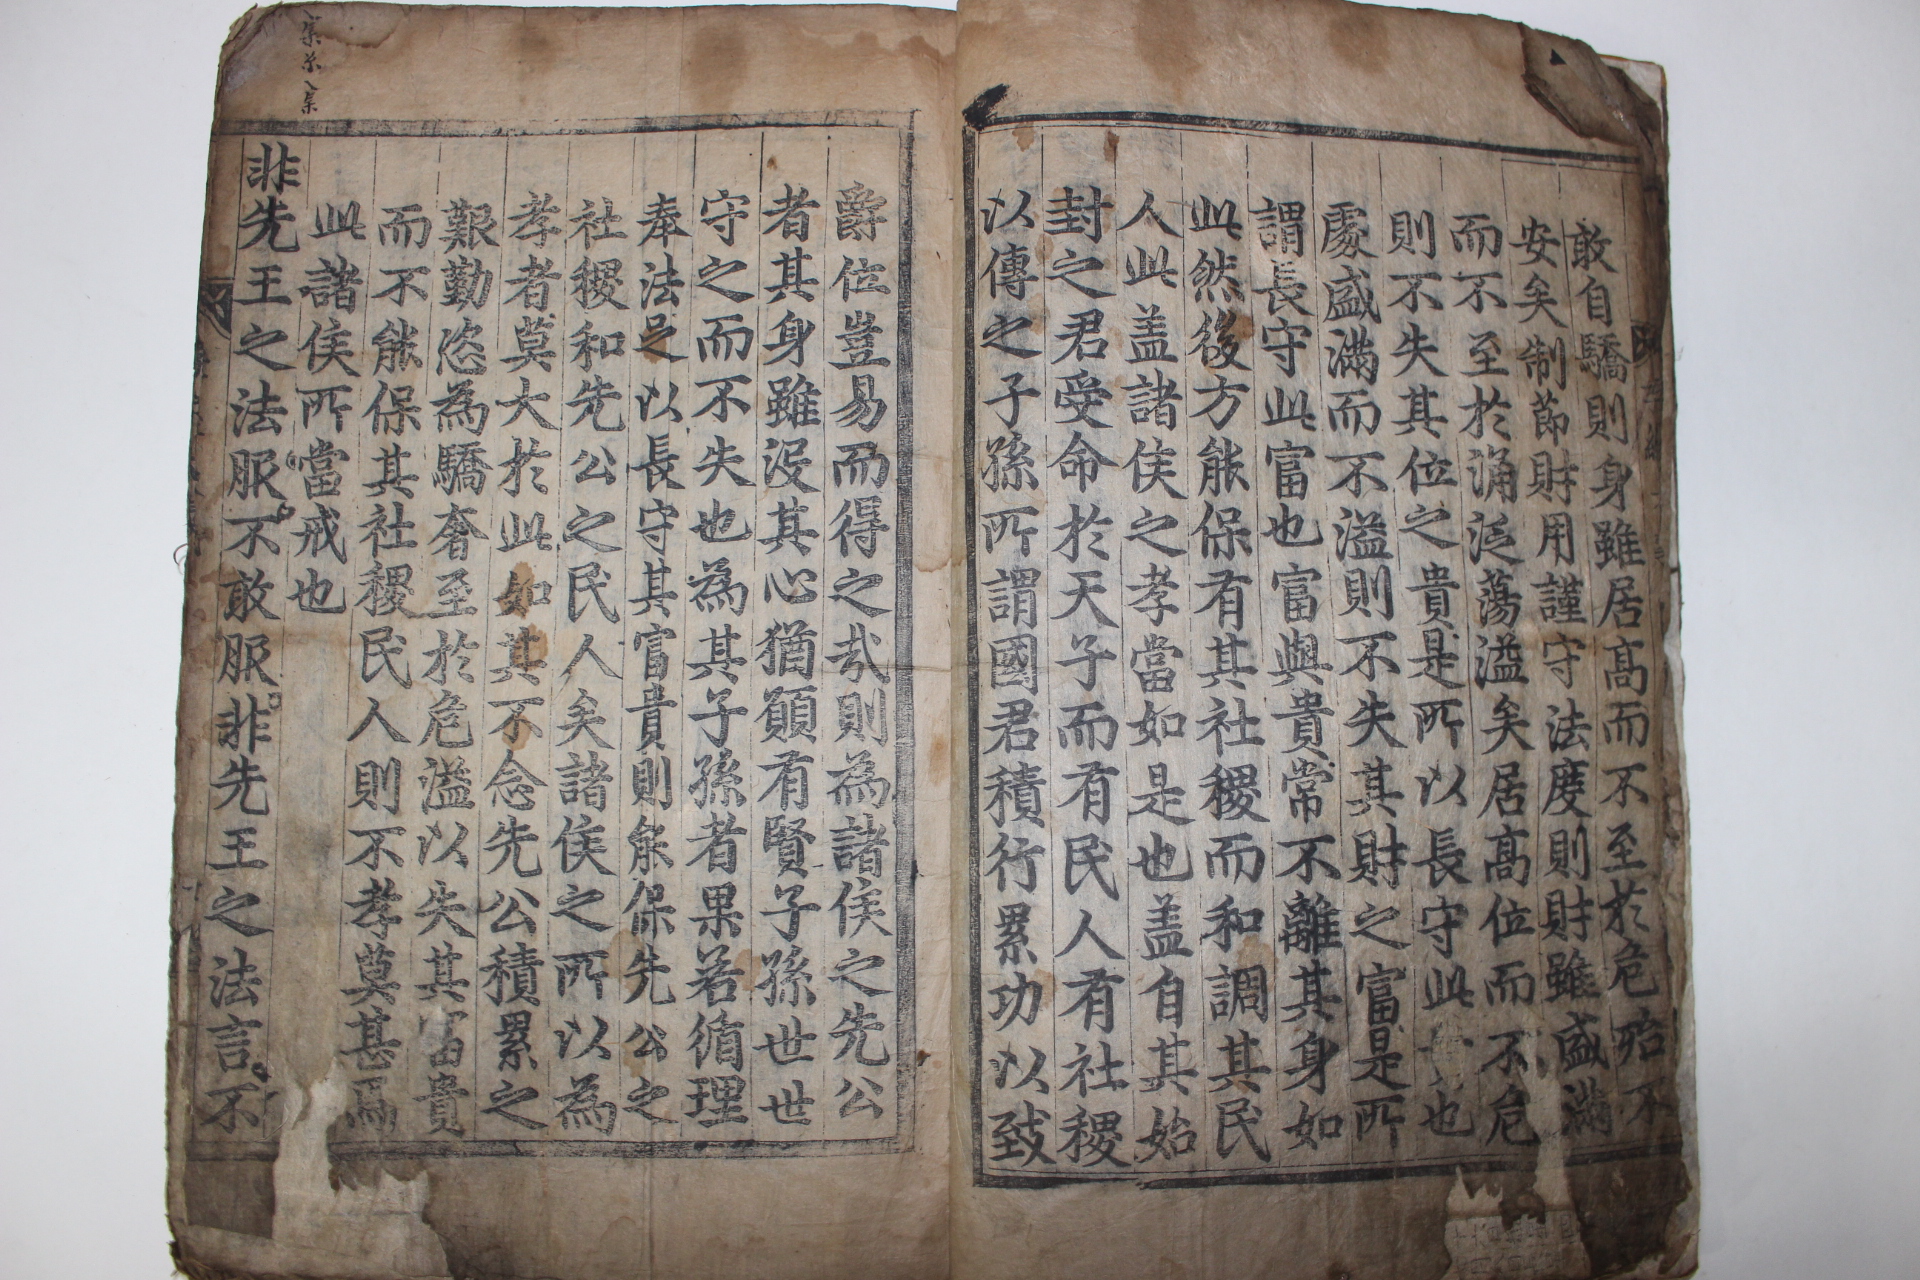 敢自驕則身雖居高而不至於危殆不
安矣制節財用謹守法度則財雖盛滿
而不至於涌泛蕩溢矣居高位而不危
則不失其位之貴是所以長守此貴也
處盛滿而不溢則不失其財之富是所
謂長守此富也富與貴常不離其身如
此然後方能保有其社稷而和調其民
人此盖諸侯之孝當如是也盖自其始
封之君受命於天子而有民人有社稷
以傳之子孫所謂國君積行累功以致
爵位豈易而得之㢤則為諸侯之先公
者其身雖沒其心猶願有賢子孫世世
守之而不失也為其子孫者果若循理
奉法足以長守其富貴則能保先公之
社稷和先公之民人矣諸侯之所以為
孝者莫大於此如其不念先公積累之
艱勤恣為驕奢至於危溢以失其富貴
而不能保其社稷民人則不孝莫甚焉
此諸侯所當戒也
非先王之法服不敢服非先王之法言不